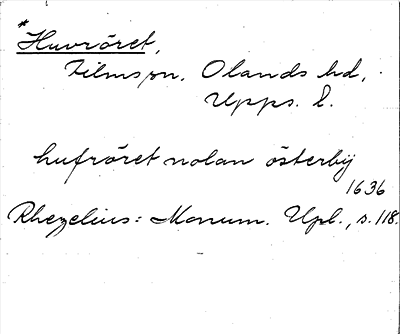 *Huvröret,
Films sn. Olands hd,
Upps. l.
hufröret nolan österbÿ
1636
Rhezelius: Monum. Upl., s. 118.